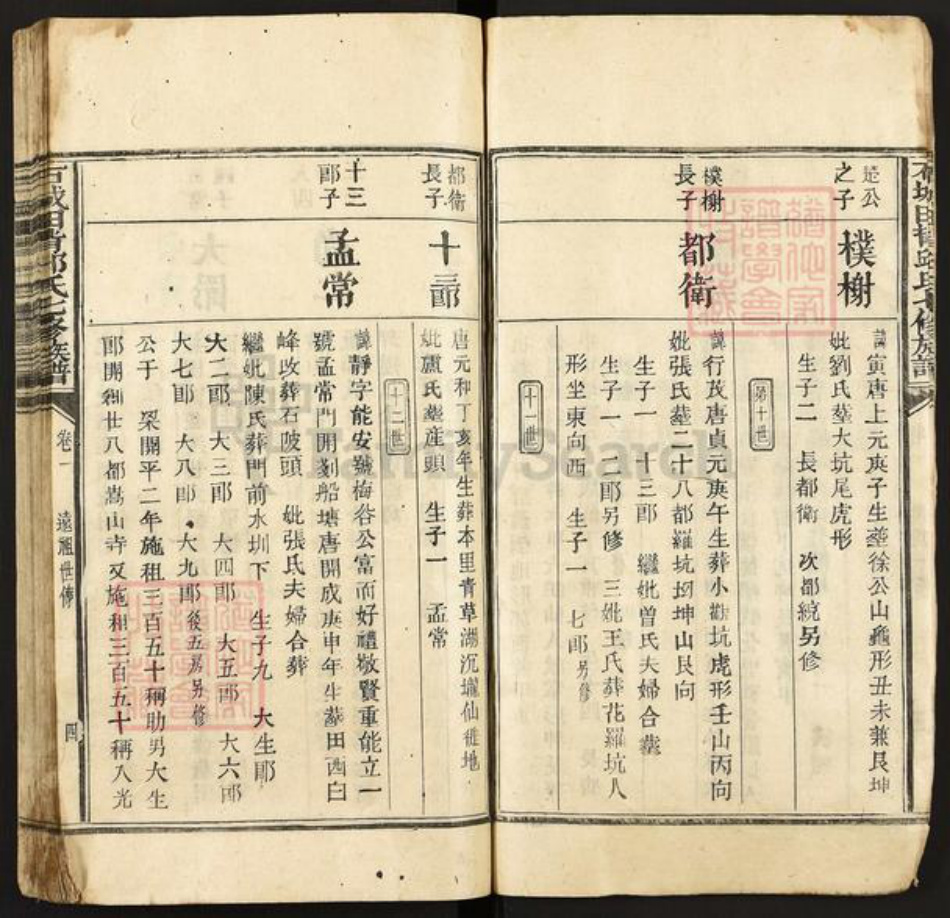 是公
之子
樸榭
諱寅唐上元庚子生塟徐公山龜形丑未兼艮坤
妣劉氏塟大坑尾虎形
生子二 長都衛 次都統另修
第十世
樸榭
長子
都衛
諱行茂唐貞元庚午生葬小歡坑虎形壬山丙向
妣張氏塟二十八都羅坑坳坤山艮向
生子一 十三郎 繼妣曾氏夫婦合塟
生子一 二郎另修 三妣王氏葬花羅坑人
形坐東向西 生子一 七郎另修
十一世
都衛
長子
十三郎
唐元和丁亥年生葬本里青草湖沉壠仙 地
妣盧氏塟産頭 生子一 孟常
十二世
十三
郎子
孟常
諱靜字能安號梅谷公富而好禮敬賢重能立一
號孟常門開剗船塘唐開成庚申年生塟田西白
峰改葬石陂頭 妣張氏夫婦合葬
繼妣陳氏葬門前水圳下 生子九 大生郎
大二郎 大三郎 大四郎 大五郎 大六郎
大七郎 大八郎 大九郎後五房另修
公于 梁開平二年施租三百五十稱助男大生
郎開創廿八都嵩山寺又施租三百五十稱入光
石城田背鄧氏七修族譜 卷一 遠祖世傳 四